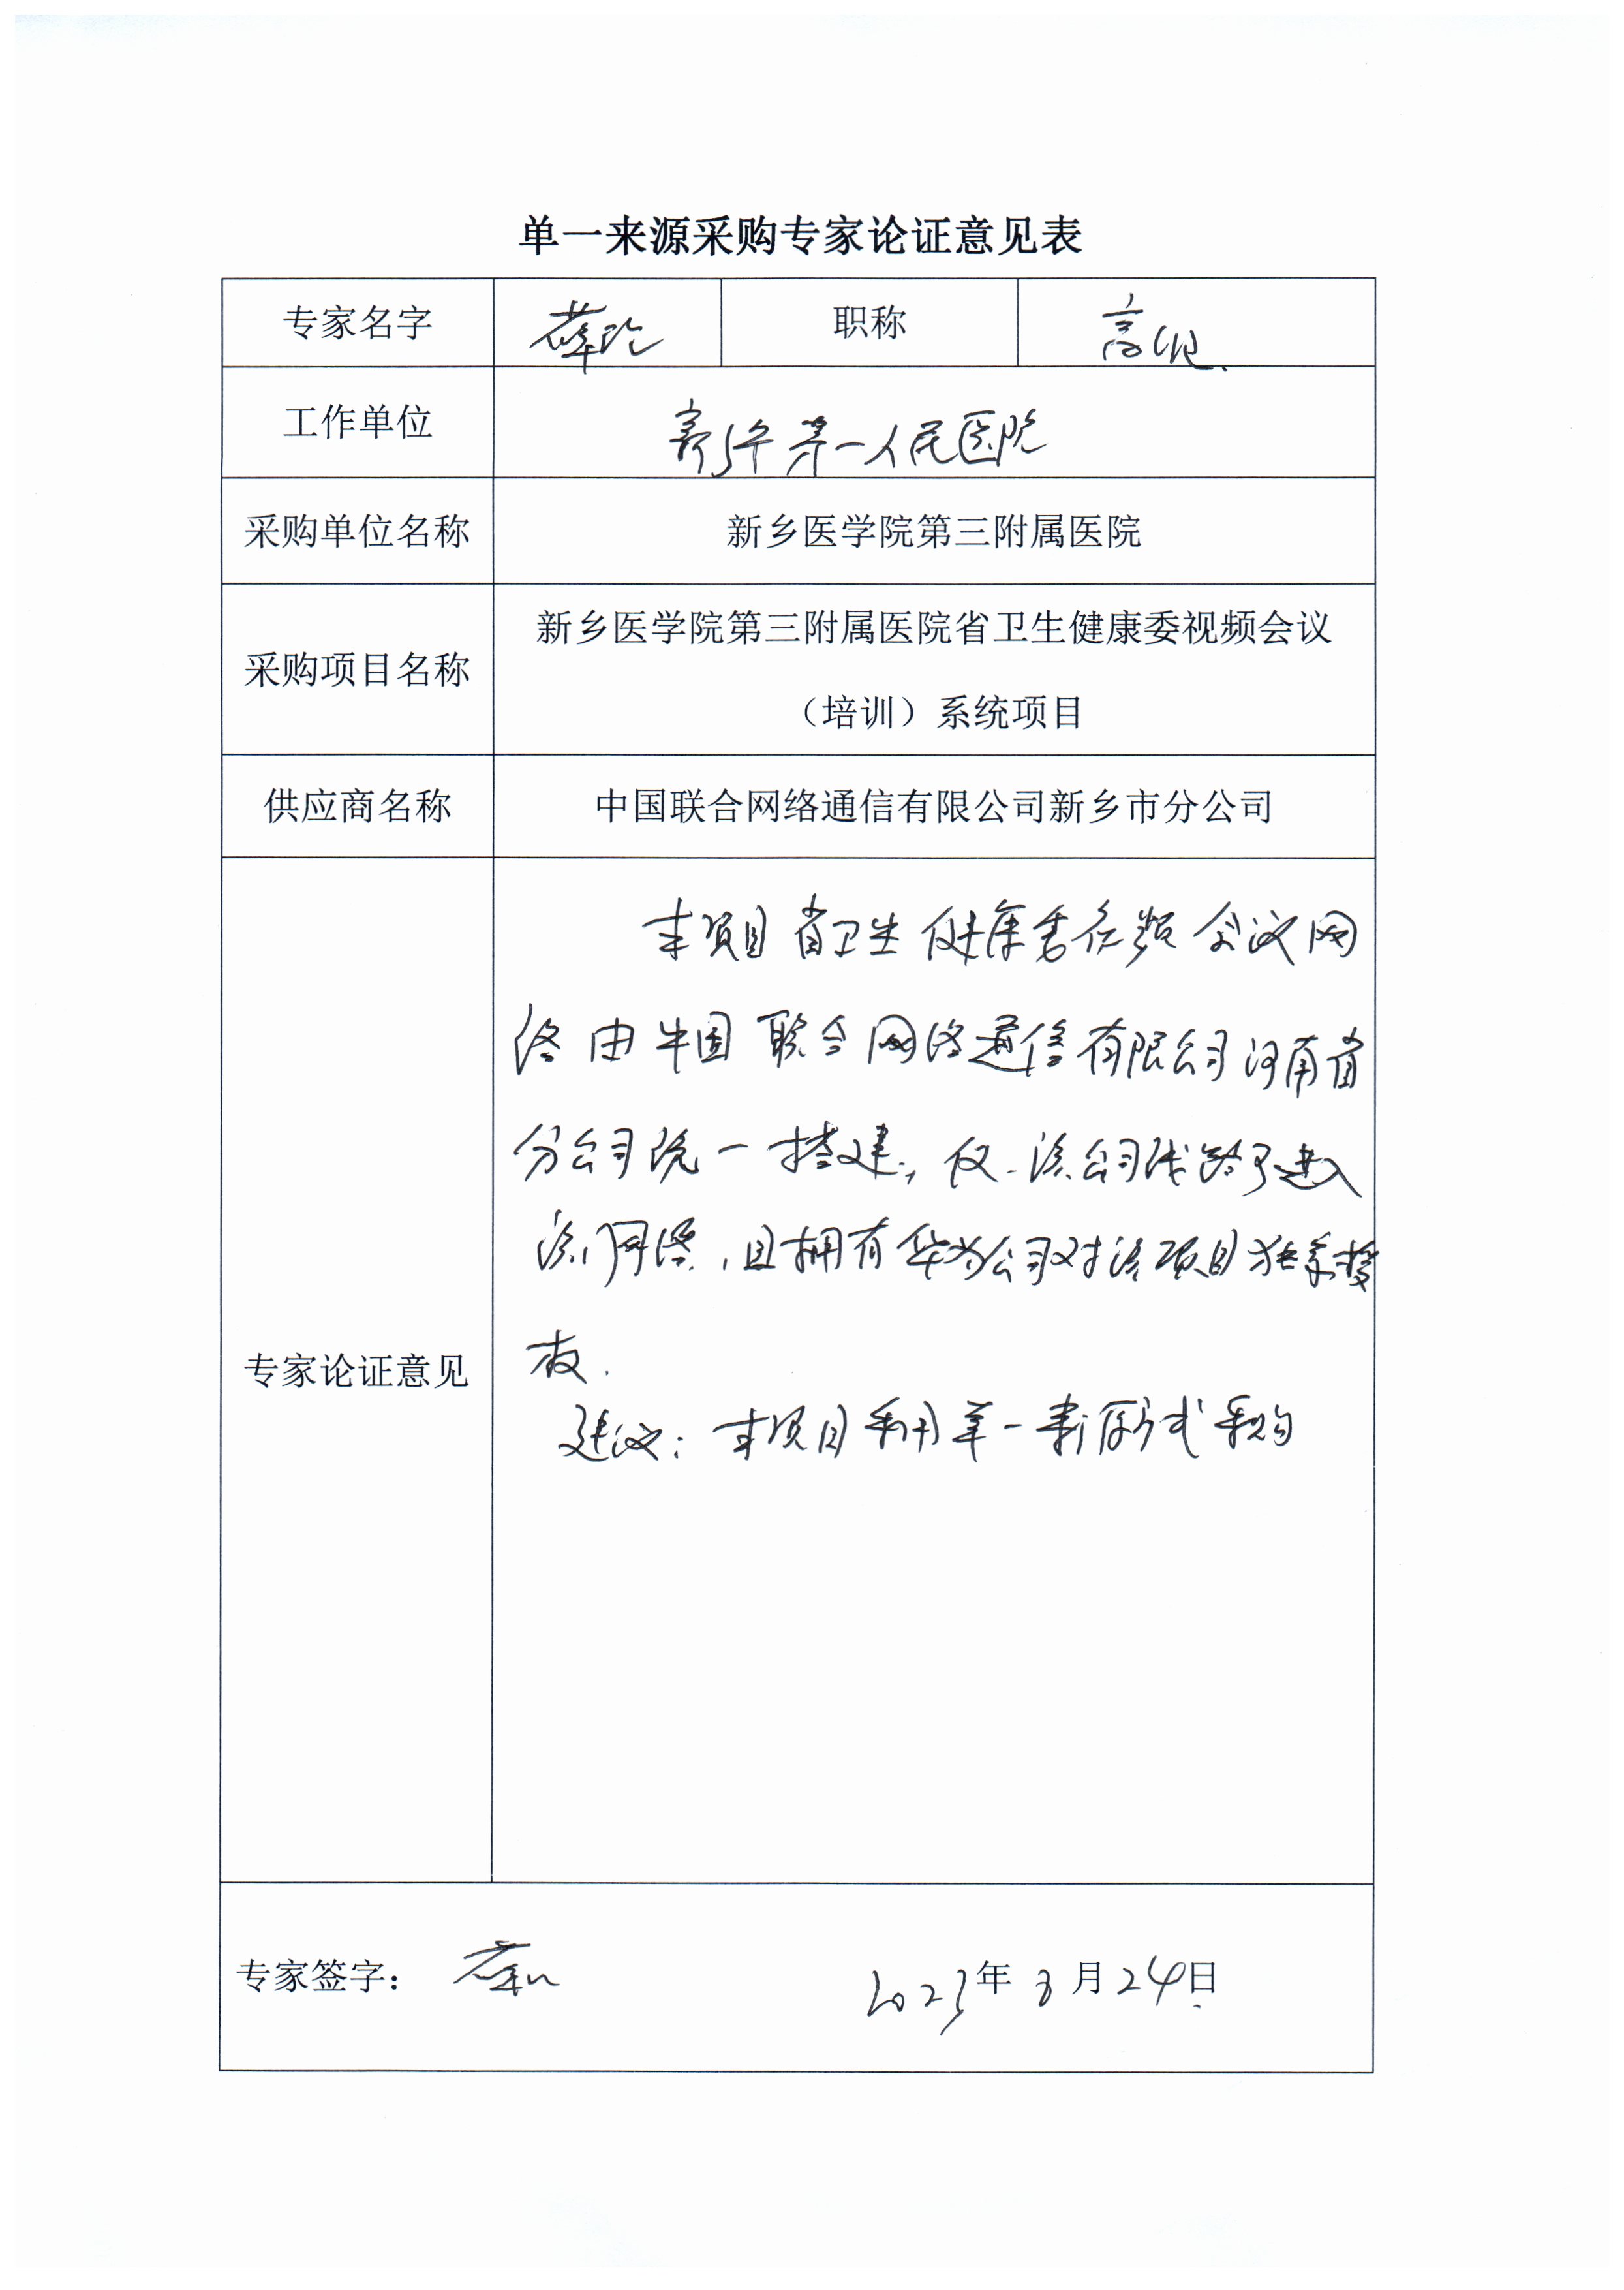 单一来源采购专家论证意见表
专家名字 薛 职称 高
工作单位 新乡第一人民医院
采购单位名称 新乡医学院第三附属医院
采购项目名称 新乡医学院第三附属医院省卫生健康委视频会议
（培训）系统项目
供应商名称 中国联合网络通信有限公司新乡市分公司
专家论证意见
本项目省卫生健康委视频会议网
络由中国联合网络通信有限公司河南省
分公司统一搭建，仅该公司线路可进入
该网络，且拥有华为公司对该项目独家授
权.
建议：本项目采用单一来源方式采购
专家签字： 薛 2023年3月24日